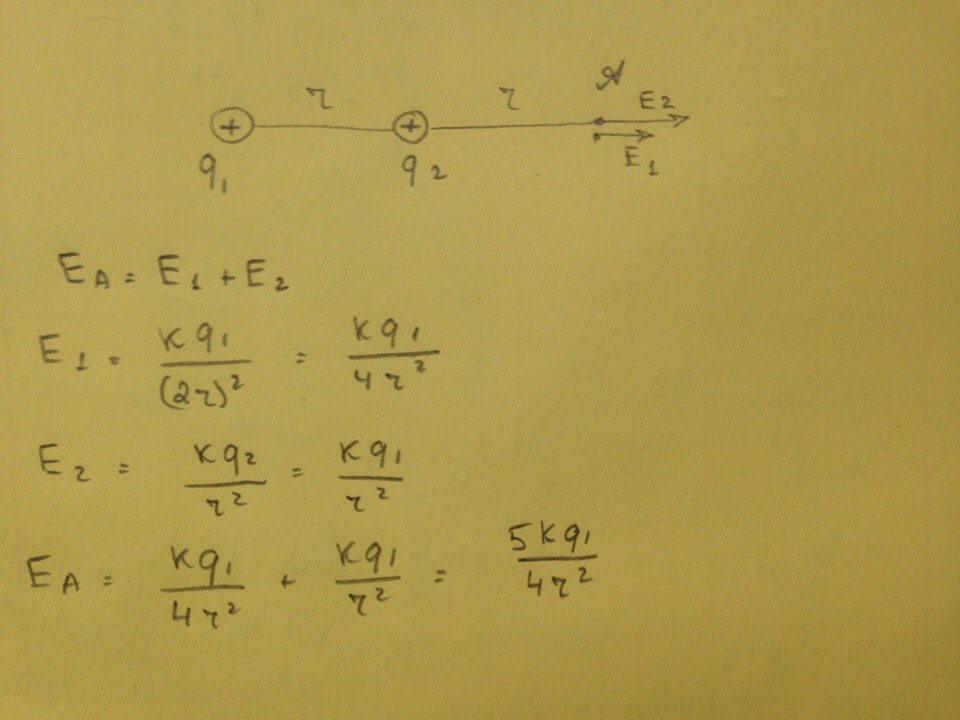 r r A E2
+ + E1
q1 q2
EA = E1 + E2
E1 = kq1/(2r)² = kq1/4r²
E2 = kq2/r² = kq1/r²
EA = kq1/4r² + kq1/r² = 5kq1/4r²